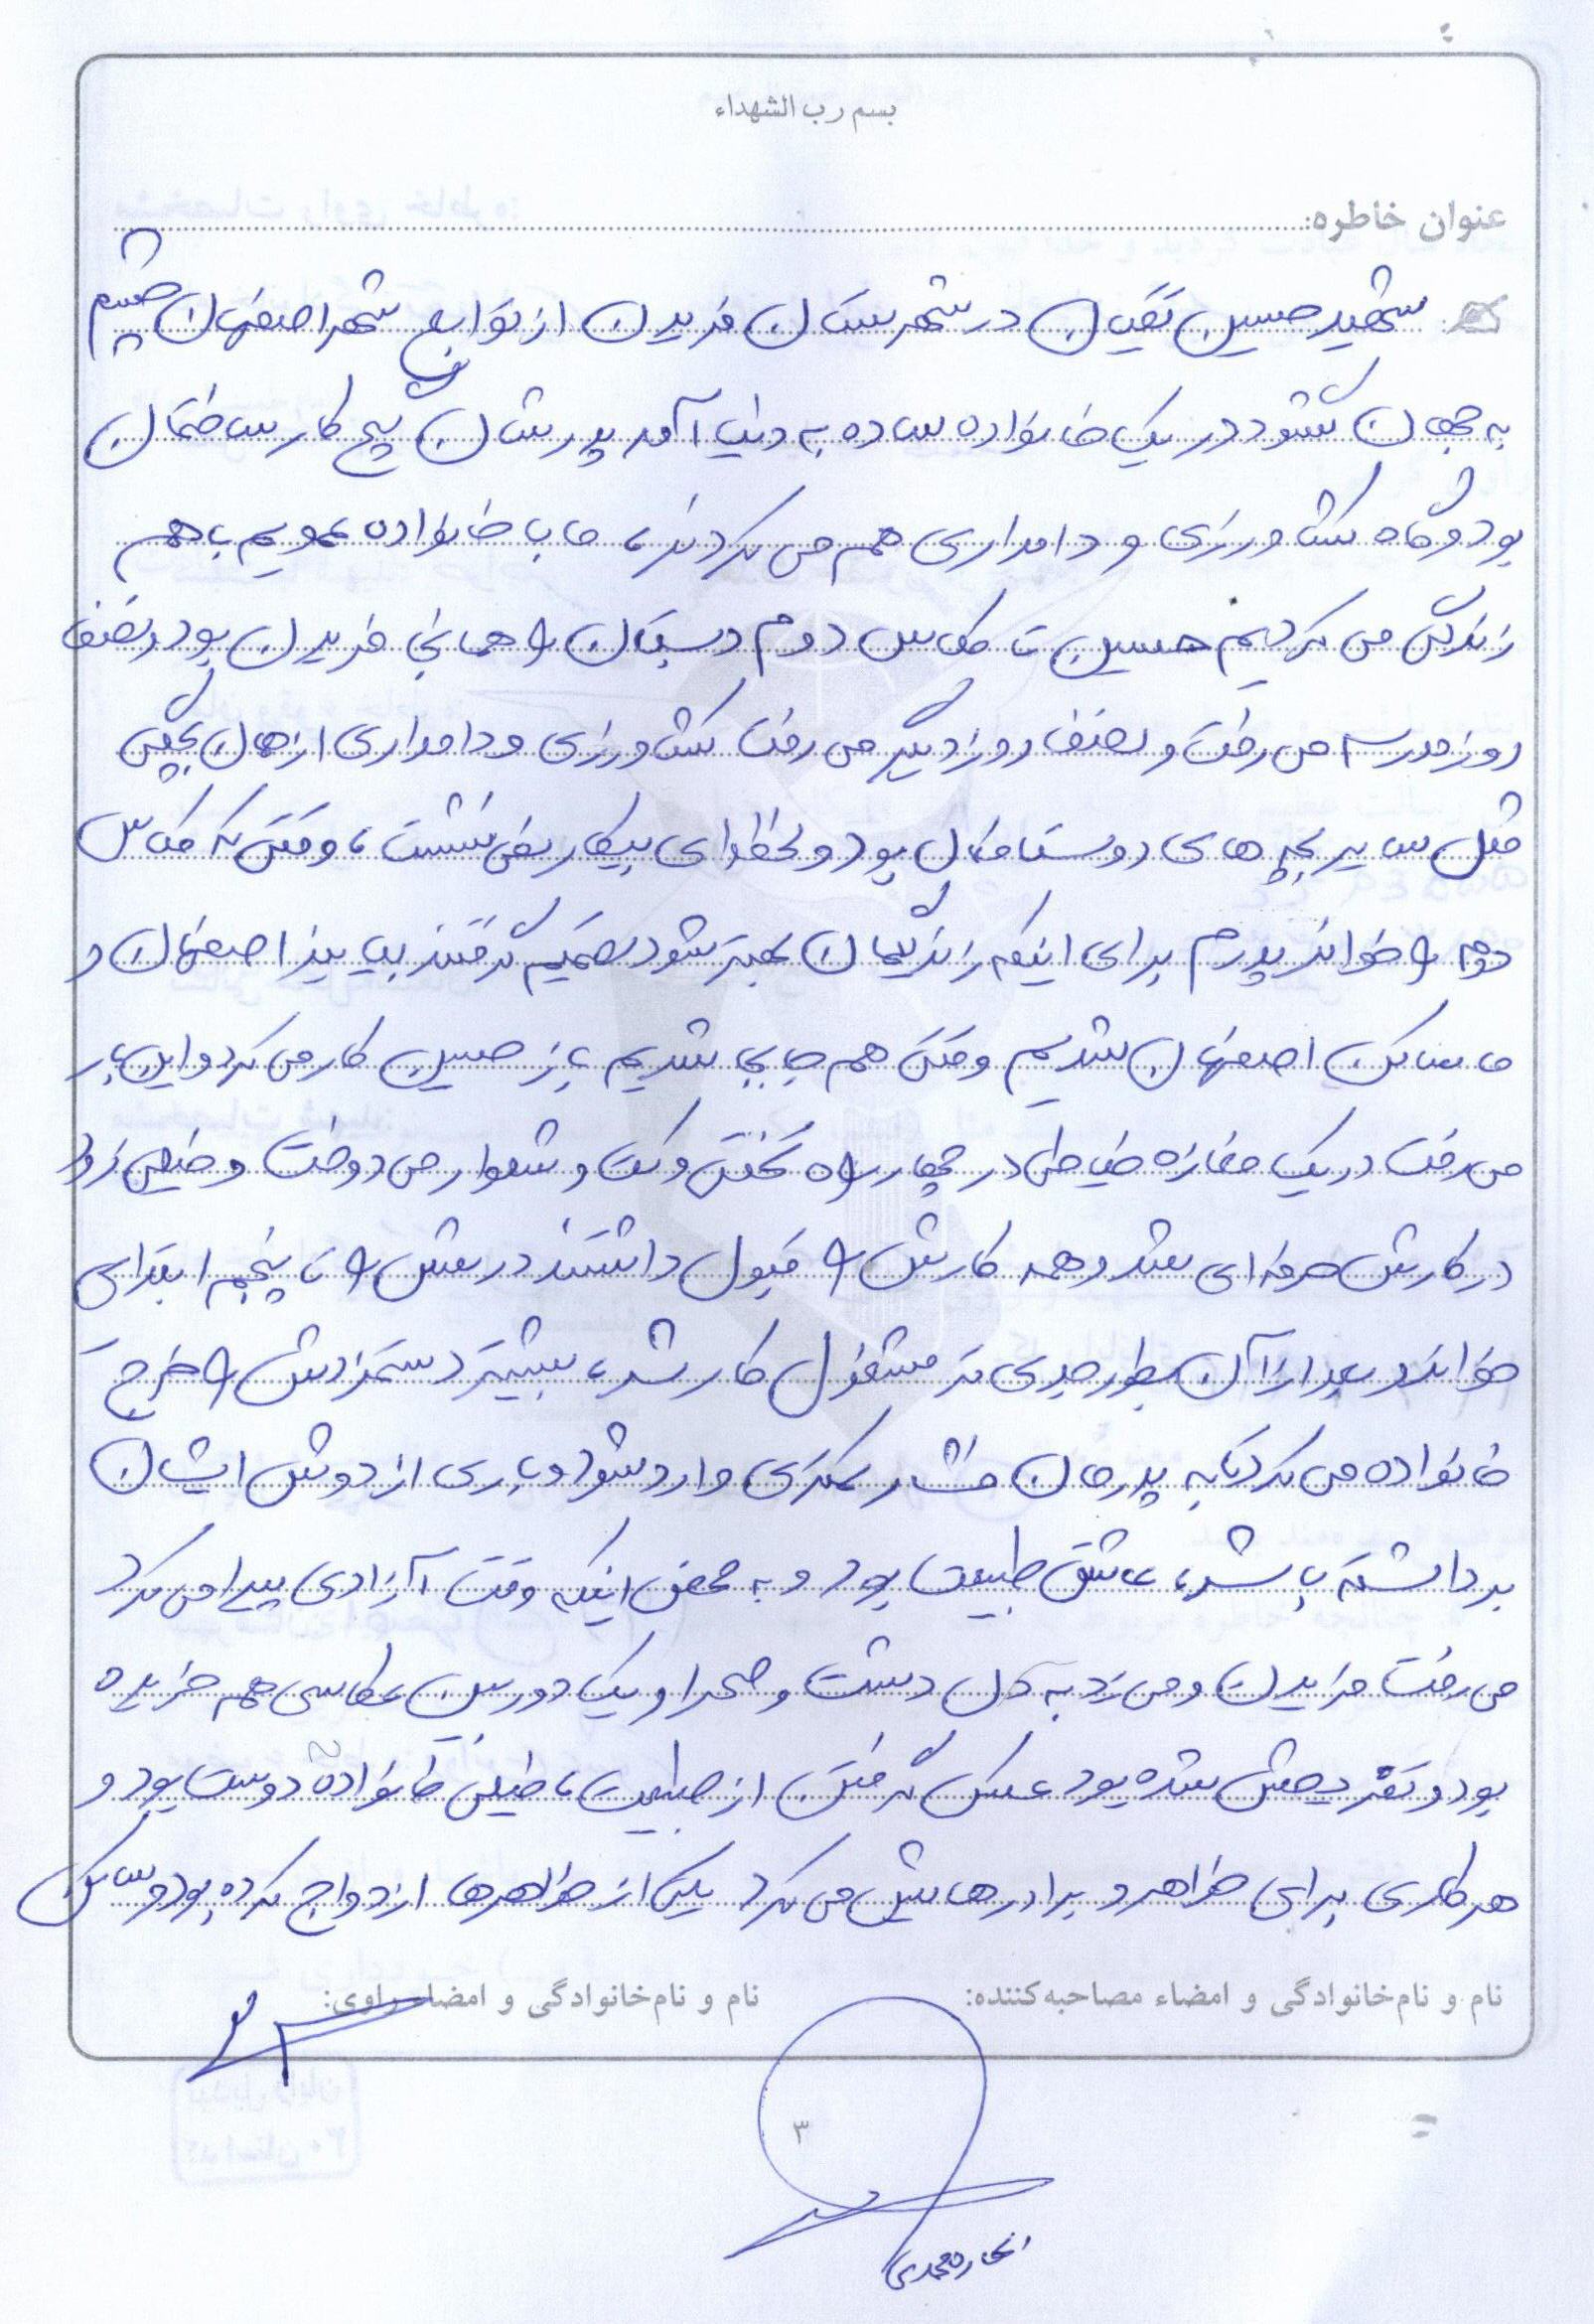 بسم رب الشهداء
عنوان خاطره:
شهید حسین تقیان در شهرستان فریدن از توابع شهر اصفهان چشم
به جهان گشود در یک خانواده ساده به دنیا آمد پدرشان گچ کار ساختمان
بود و گاه کشاورزی و دامداری هم می کردند، ما با خانواده عمویم با هم
زندگی می کردیم حسین تا کلاس دوم دبستان را همانجا فریدن بود و نصف
روز مدرسه می رفت و نصف روز دیگر می رفت کشاورزی و دامداری از همان بچگی
مثل سایر بچه های روستا فعال بود و لحظه ای بیکار نمی نشست، وقتی که کلاس
دوم را خواند پدرم برای اینکه زندگیمان بهتر شود تصمیم گرفتند بیایند اصفهان و
ما ساکن اصفهان شدیم وقتی هم جابجا شدیم باز حسین کار می کرد و این بار
می رفت در یک مغازه خیاطی در چهار راه تختی و کت و شلوار می دوخت و خیلی زود
در کارش حرفه ای شد و همه کارش را قبول داشتند درسش را تا پنجم ابتدایی
خواند و بعد از آن بطور جدی تر مشغول کار شد، بیشتر دستمزدش را خرج
خانواده می کرد تا به پدرمان فشار کمتری وارد شود و باری از دوش ایشان
برداشته باشد، عاشق طبیعت بود و به محض اینکه وقت آزادی پیدا می کرد
می رفت فریدن و می زد به دل دشت و صحرا و یک دوربین عکاسی هم خریده
بود و تفریحش شده بود عکس گرفتن از طبیعت، خیلی خانواده دوست بود و
هر کاری برای خواهر و برادرهایش می کرد یکی از خواهرها ازدواج کرده بود و ساکن
نام و نام‌خانوادگی و امضاء مصاحبه‌کننده:
نام و نام‌خانوادگی و امضاء راوی:
۳